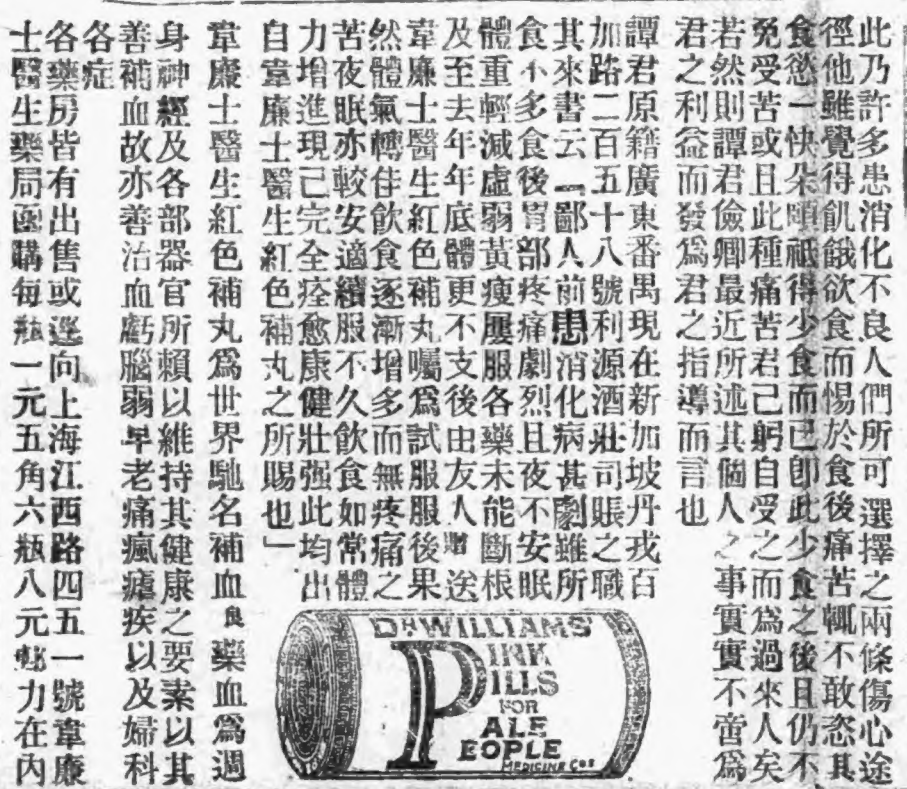 此乃許多患消化不良人們所可選擇之兩條傷心途
徑他雖覺得飢餓欲食而惕於食後痛苦輒不敢恣其
食慾一快朵頤祇得少食而已卽此少食之後且仍不
免受苦或且此種痛苦君已躬自受之而爲過來人矣
若然則譚君儉卿最近所述其個人之事實實不啻爲
君之利益而發爲君之指導而言也
譚君原籍廣東番禺現在新加坡丹戎百
加路二百五十八號利源酒莊司賬之職
其來書云「鄙人前患消化病甚劇雖所
食不多食後胃部疼痛劇烈且夜不安眠
體重輕減虛弱黃瘦屢服各藥未能斷根
及至去年年底體更不支後由友人贈送
韋廉士醫生紅色補丸囑爲試服服後果
然體氣轉佳飲食逐漸增多而無疼痛之
苦夜眠亦較安適續服不久飲食如常體
力增進現已完全痊愈康健壯强此均出
自韋廉士醫生紅色補丸之所賜也」
DR WILLIAMS'
PINK
PILLS
FOR
PALE
PEOPLE
MEDICINE Co's
韋廉士醫生紅色補丸爲世界馳名補血良藥血爲週
身神經及各部器官所賴以維持其健康之要素以其
善補血故亦善治血虧腦弱早老痛瘋瘧疾以及婦科
各症
各藥房皆有出售或逕向上海江西路四五一號韋廉
士醫生藥局函購每瓶一元五角六瓶八元郵力在內